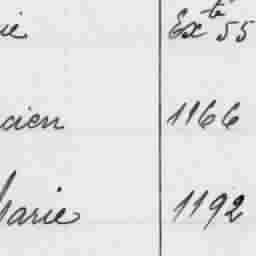 ie Exté 55
cien 1166
Marie 1192